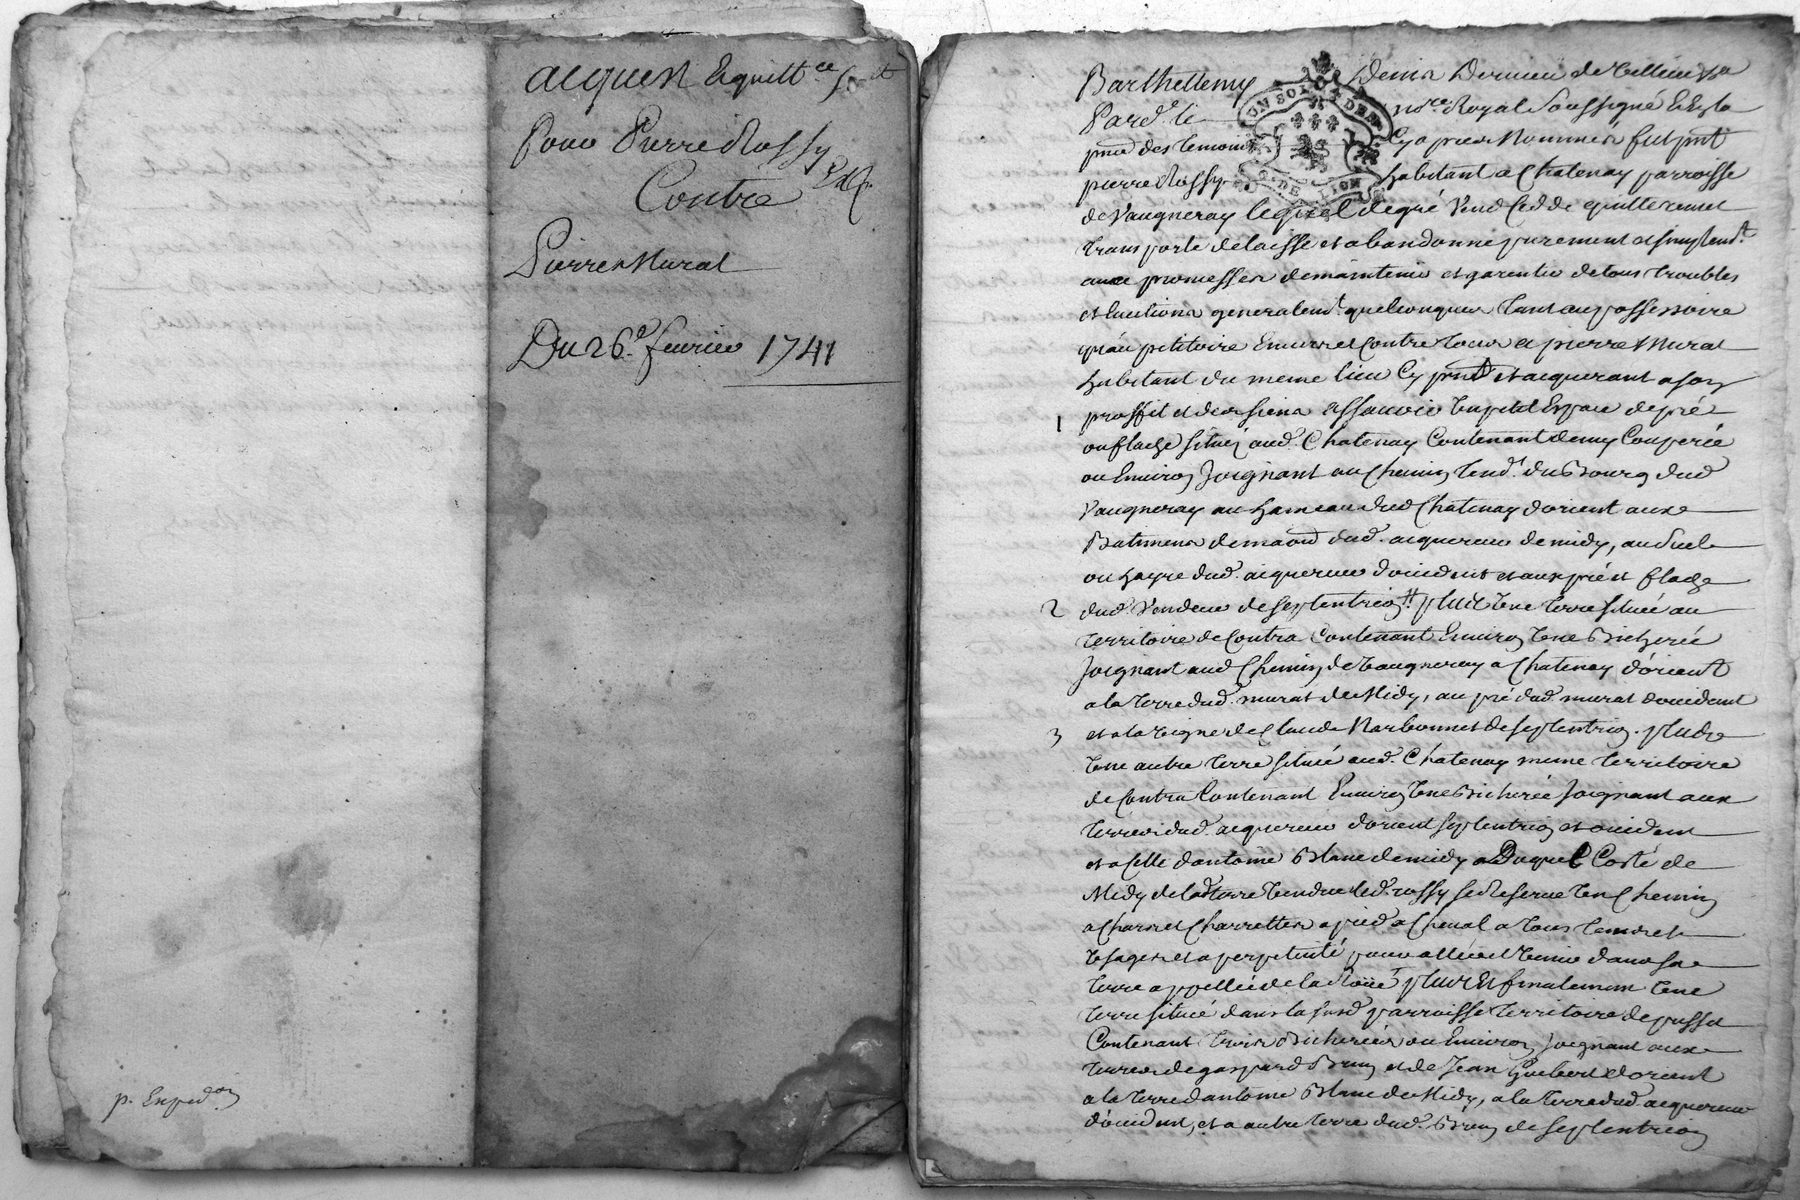 acquest & quitt.ce
Pour Pierre Rossy
Contre
Pierre Murat
Du 26.e fevrier 1741
p. Exped.on
Barthellemy Denis
Pard. le no.re Royal Soussigné &
pnce des temoins Cy apres Nommés fut pnt
pierre Rossy habitant a Chatenay parroisse
de Vaugneray lequel de gré Vend Cedde quitte remet
transporte delaisse et abandonne purement et simplem.t
avec promesses de maintenir et garentir de tous troubles
et Evictions generalem.t quelconques tant au possessoire
qu'au petitoire Envers et Contre tous a pierre Murat
habitant du meme lieu Cy pnt et acquerant a son
1 proffit et des siens assavoir Un petit Espace de pré
ou flache situé aud. Chatenay Contenant demy Couperée
ou Environ Joignant au Chemin tend.t du Bourg dud
Vaugneray au hameau dud Chatenay d'orient aux
Batimens de maon dud. acquereur de midy, au Suel
ou hayre dud. acquereur d'occident et aux pré et flache
2 dud. Vendeur de septentrion plus Une terre située au
territoire de Contra Contenant Environ Une Bicherée
Joignant aud Chemin de Vaugneray a Chatenay d'orient
a la terre dud. murat de Midy, au pré dud murat d'occident
3 et a la vigne de Claude Narbonnet de septentrion. plus
Une autre terre située aud. Chatenay meme territoire
de Contra Contenant Environ Une Bicherée Joignant aux
terres dud. acquereur d'orient septentrion et occident
et a Celle d'antoine Blanc de midy a Duquel Costé de
Midy de lad terre Vendue led. rossy se Reserve Un Chemin
a Chars et Charrettes a pied a Cheval a tous tems et
Usages et a perpetuité pour aller et Venir dans sa
terre appellée de la Roüe plus Et finalement Une
terre située dans la susd parroisse territoire de
Contenant trois Bicherées ou Environ Joignant aux
terres de gaspard Brun et de Jean Guibert d'orient
a la terre d'antoine Blanc de Midy, a la terre dud. acquereur
d'occident, et a autre terre dud. Brun de septentrion